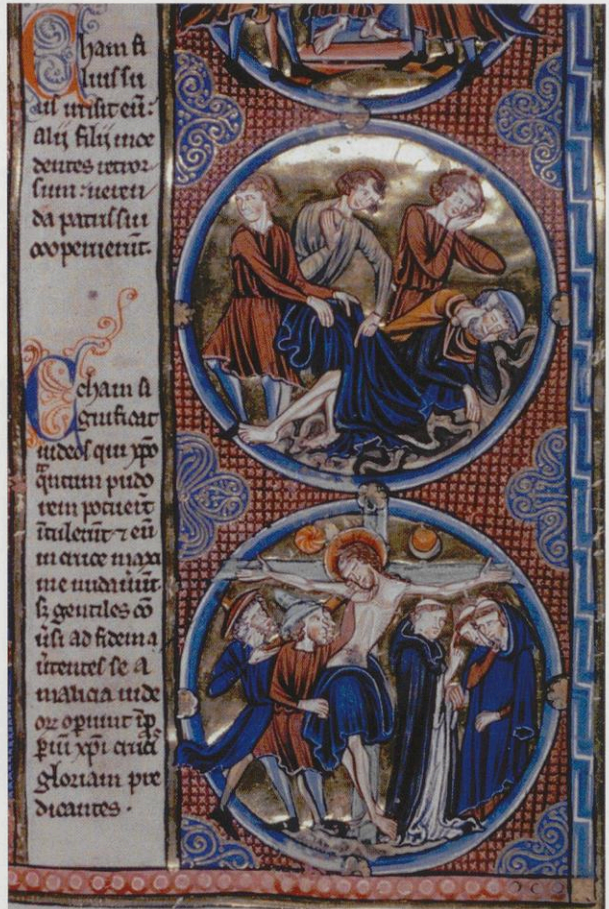 Cham fi
lius su
us irrisit eū:
alij filij ince
dentes retror
sum: veren
da patris sui
cooperierūt.
Cham si
gnificat
iudeos qui xpo
quantum pudo
rem potuerūt
ītulerūt ⁊ eū
in cruce maxi
me nudauerūt
sꝫ gentiles cō
uersi ad fidem a
uertentes se a
malicia iude
orum
xpi crucis
gloriam pre
dicantes.